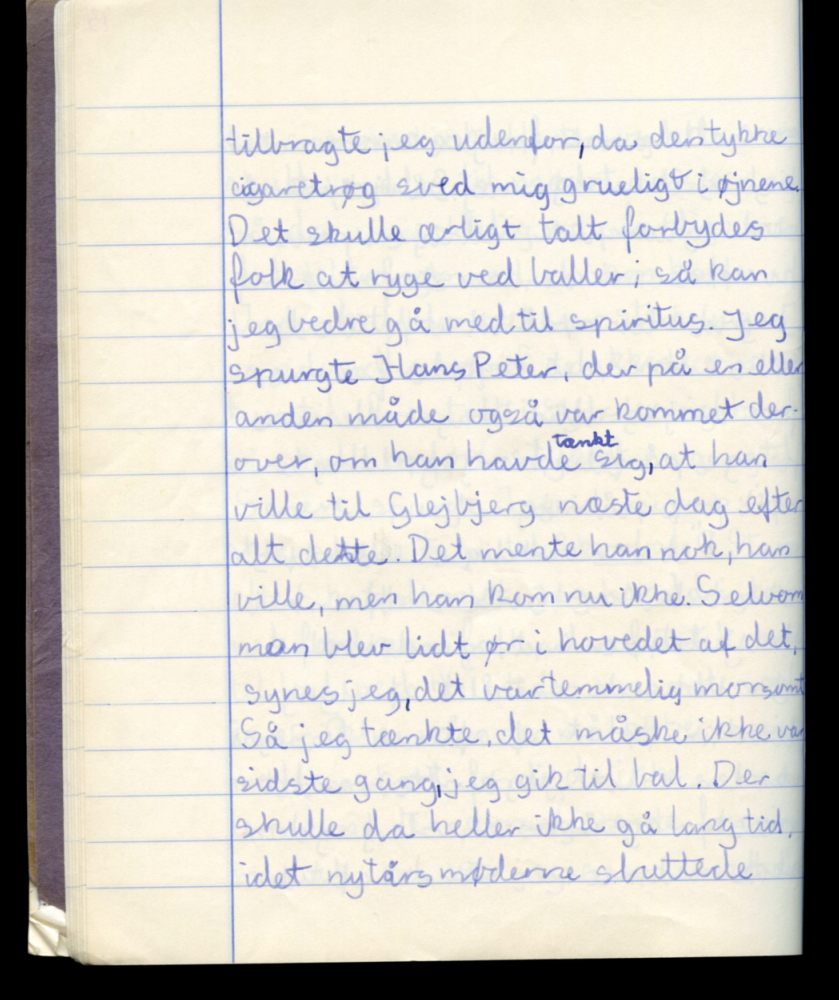 tilbragte jeg udenfor, da den tykke
cigaretrøg sved mig grueligt i øjnene.
Det skulle ærligt talt forbydes
folk at ryge ved baller; så kan
jeg bedre gå med til spiritus. Jeg
spurgte Hans Peter, der på en eller
anden måde også var kommet der-
over, om han havde tænkt sig, at han
ville til Glejbjerg næste dag efter
alt dette. Det mente han nok, han
ville, men han kom nu ikke. Selvom
man blev lidt ør i hovedet af det,
synes jeg, det var temmelig morsomt
Så jeg tænkte, det måske ikke var
sidste gang, jeg gik til bal. Der
skulle da heller ikke gå lang tid,
idet nytårsmøderne sluttede